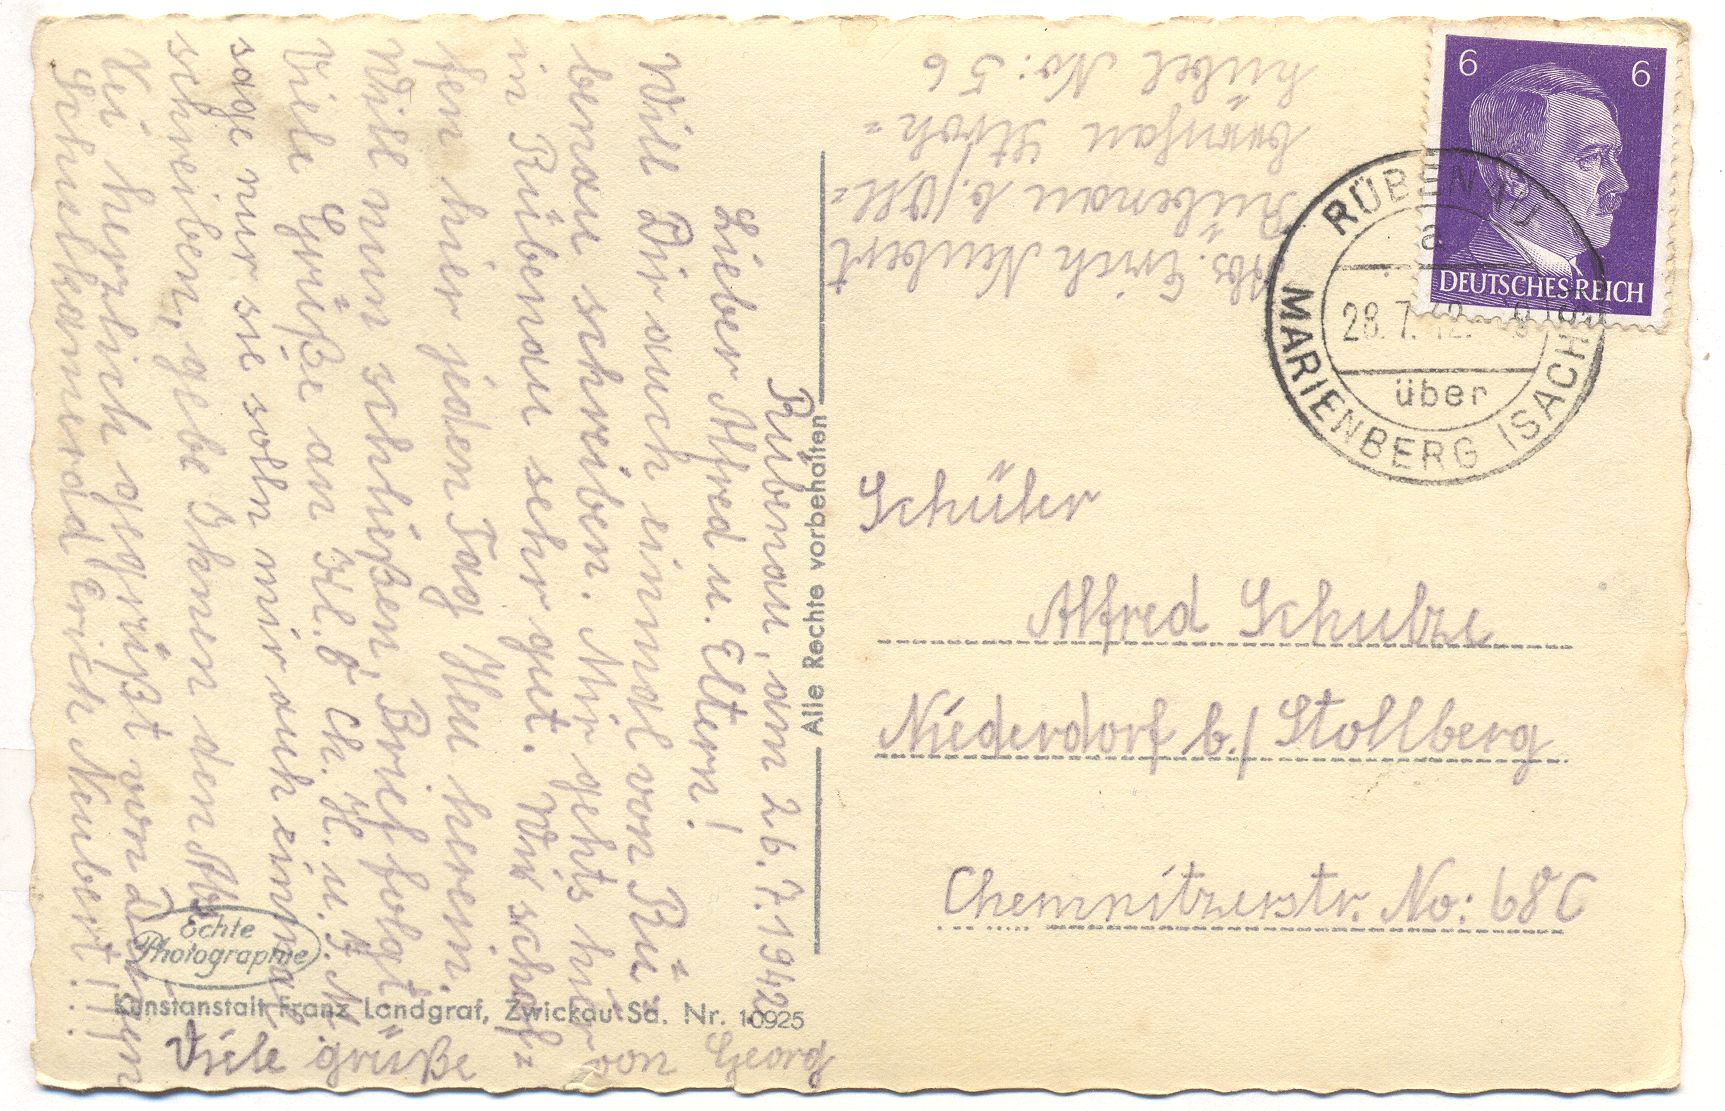 Rübenau, am 26.7.1942.
Lieber Alfred u. Eltern!
Will Dir auch einmal von Rü-
benau schreiben. Mir gehts hier
in Rübenau sehr gut. Wir schaf-
fen hier jeden Tag Heu herein.
Will nun schließen, Brief folgt
Viele Grüße an Kl. 6 Ch. H. u. F. M.
sage nur sie soln mir auh einmal
schreiben, gebe Ihnen den Abs.
Sei herzlich gegrüßt von Deinem
Schulkamerad Erich Neubert!!!
Viele grüße von Georg
Abs. Erich Neubert
Rübenau b./Olb=
bernhau Stroh=
hübel No: 56
6 6
DEUTSCHES REICH
RÜBENAU
a
28.7.42.
über
MARIENBERG (SACHS)
Schüler
Alfred Schulze
Niederdorf b./Stollberg
Chemnitzerstr. No: 68C
Alle Rechte vorbehalten
Echte
Photographie
Kunstanstalt Franz Landgraf, Zwickau Sa. Nr. 10925